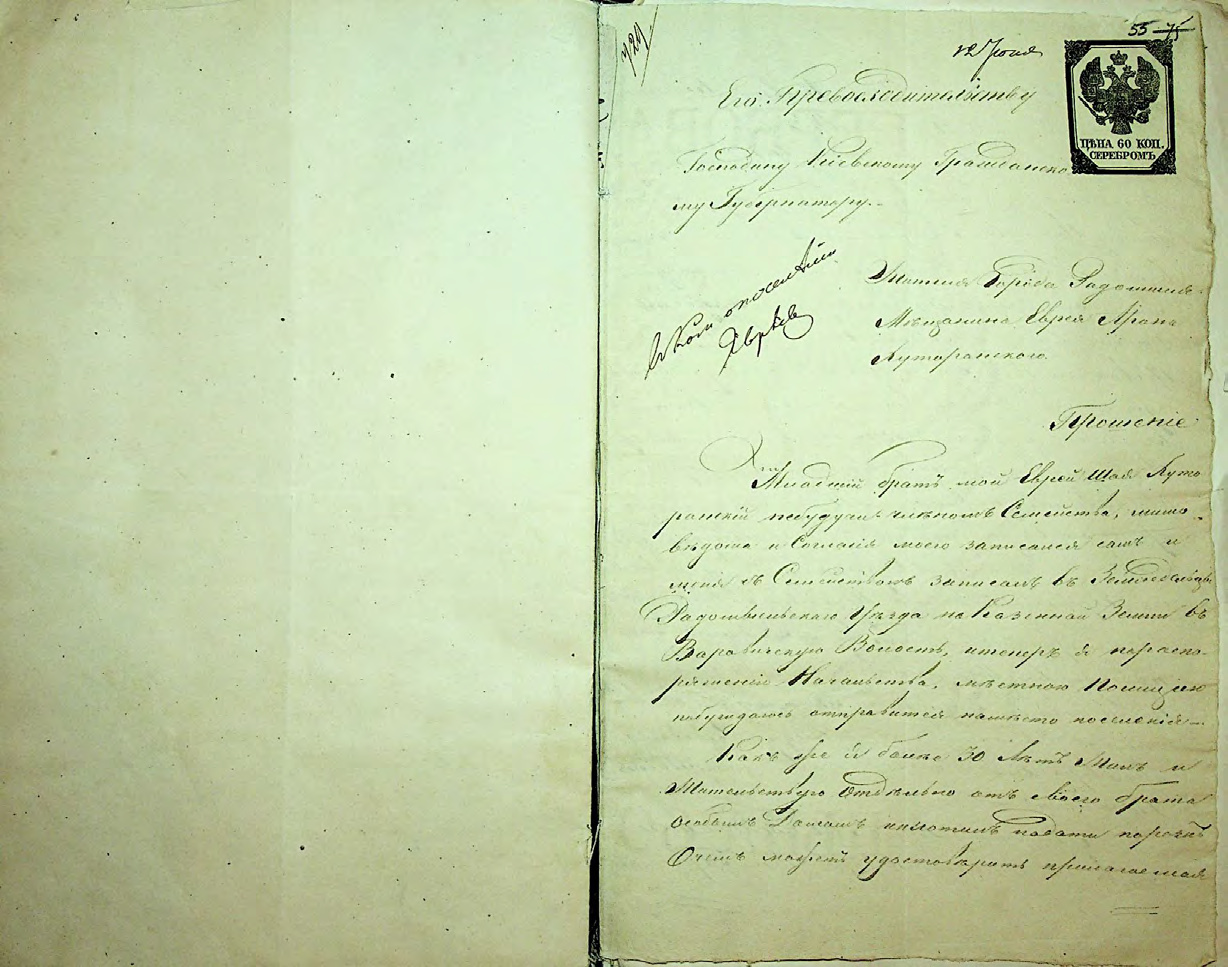 729
12 Іюня
55 75
Его Превосходительству
ЦѢНА 60 КОП.
СЕРЕБРОМЪ
Господину Кіевскому Гражданско
му Губернатору.
Жителя Города Радомысля
Мѣщанина Еврея Арона
Куторанского
о поселеніи
Евреев
Прошеніе
Младшій братъ мой Еврей Шая Куто
ранскій небудучи членомъ Семейства, мимо
вѣдома и Согласія моего записался самъ и
меня съ Семействомъ записалъ въ Земледельцы
Радомысльского Уѣзда на Казенной Земли въ
Варовическую Волость, итеперъ я пораспо-
ряженію Начальства, мѣстною Полиціею
побуждаюсь отправится намѣсто поселенія
Какъ же я болѣе 30 Лѣтъ и
Жительствую Отдѣльно отъ своего брата
особымъ Домомъ подати
Очемъ можетъ удостовѣрить прилагаемая